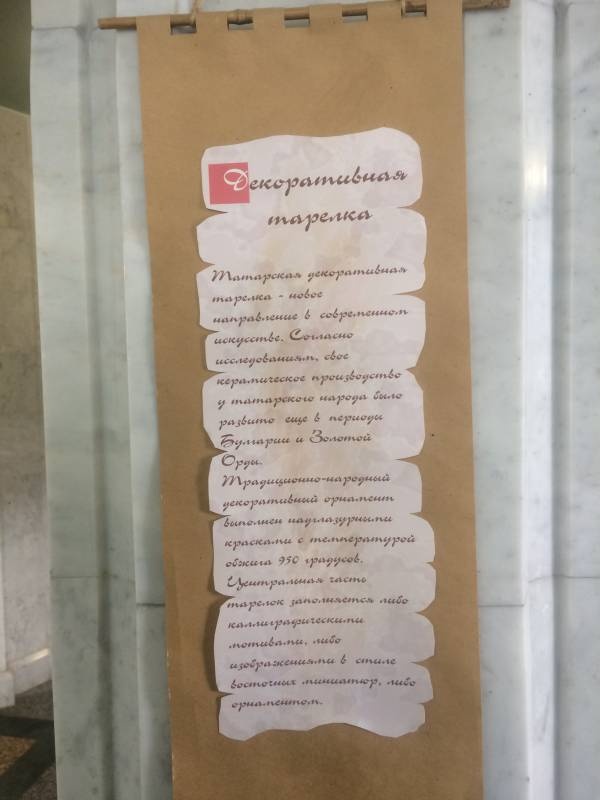 Декоративная
тарелка
Татарская декоративная
тарелка - новое
направление в современном
искусстве. Согласно
исследованиям, свое
керамическое производство
у татарского народа было
развито еще в периоды
Булгарии и Золотой
Орды.
Традиционно-народный
декоративный орнамент
выполнен надглазурными
красками с температурой
обжига 950 градусов.
Центральная часть
тарелок заполняется либо
каллиграфическими
мотивами, либо
изображениями в стиле
восточных миниатюр, либо
орнаментом.